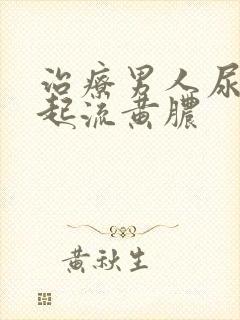 治療男人尿
起流黃膿
黃秋生